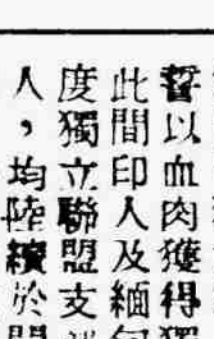 誓以血肉獲得獨
此間印人及緬甸
度獨立聯盟支
人，均陸續於